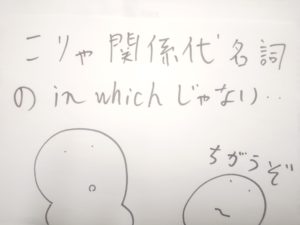 こりゃ関係代名詞
の in which じゃない‥
ちがうぞ